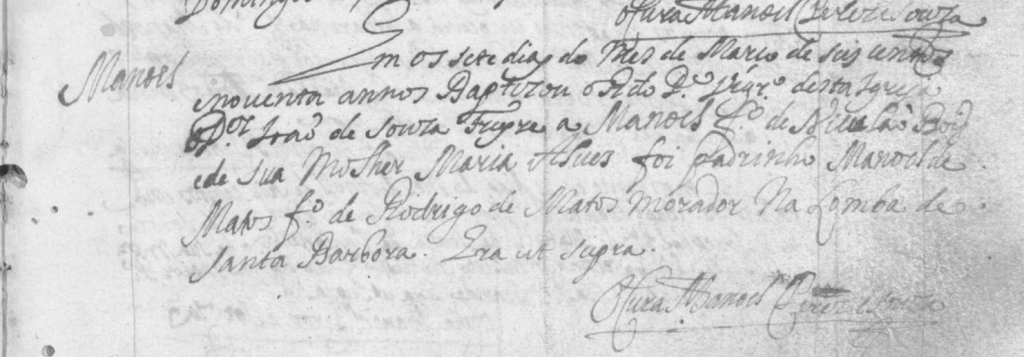 Domingos
O Cura Manoel Perez e Souza
Em os sete dias do Mes de Março de seis centos
Manoel
e noventa annos Baptizou o Rdo P.e Vigr.o desta Igreja
o P.or Joaõ de Souza Freyre a Manoel f.o de Nicolaò Roiz
e de sua Molher Maria Alves foi padrinho Manoel de
Matos f.o de Rodrigo de Matos Morador Na Lomba de
Santa Barbora. Era ut supra.
O Cura Manoel Perez e Souza